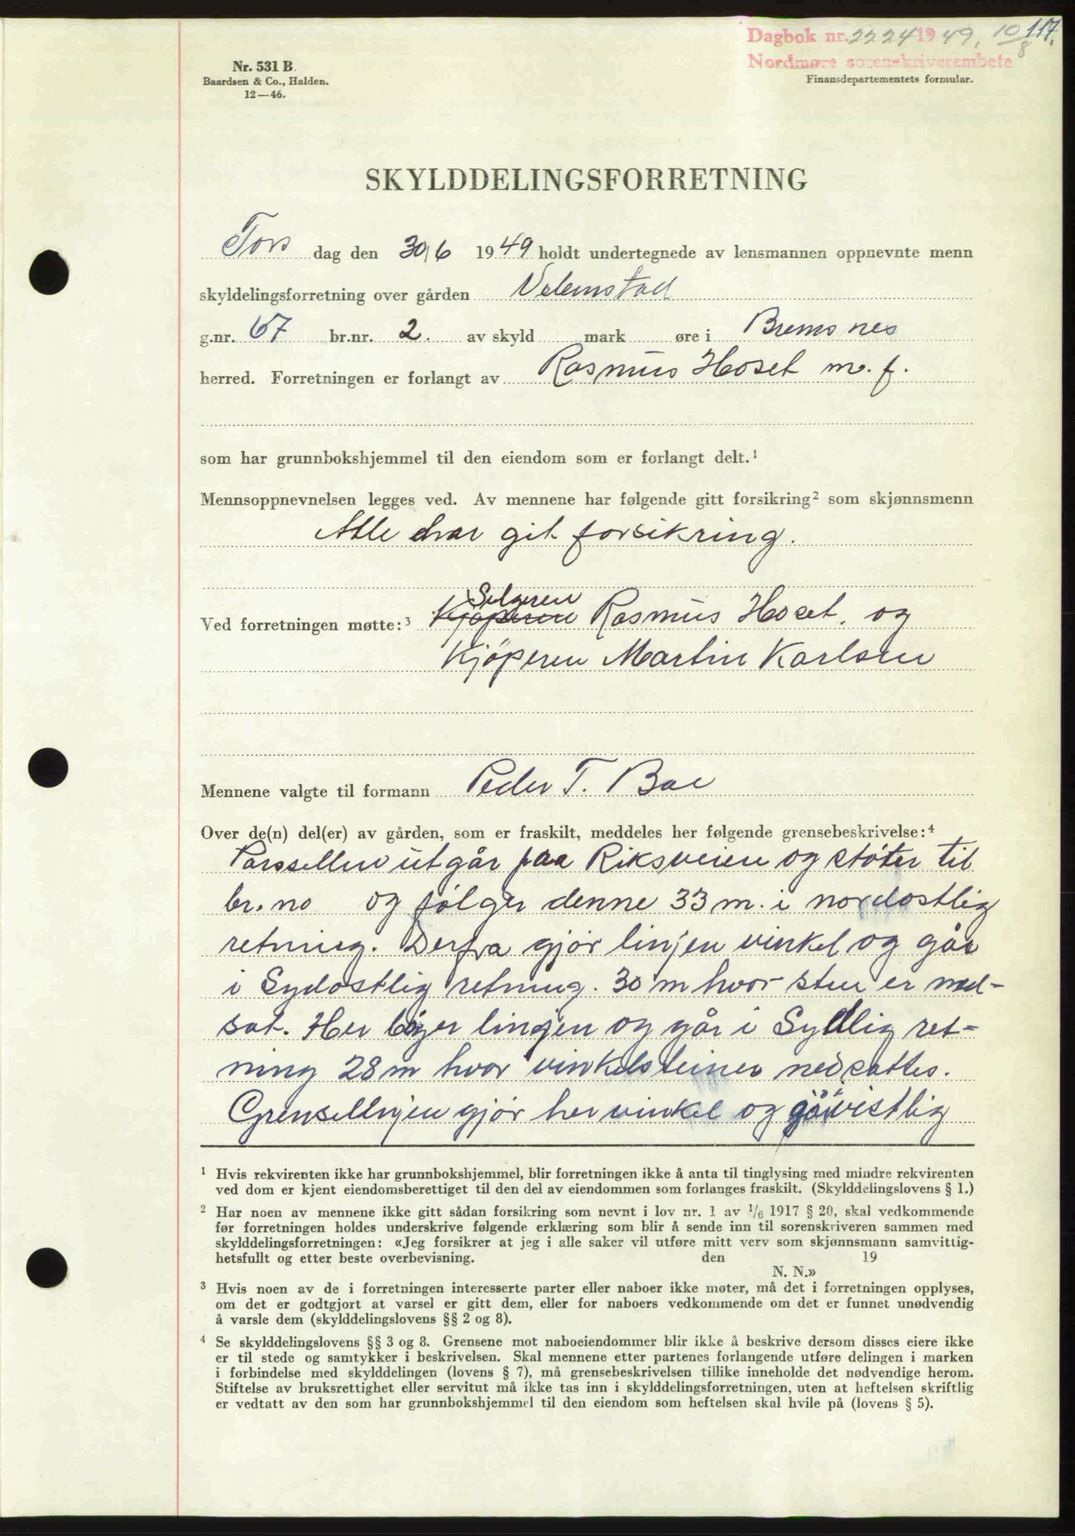 Dagbok nr. 2224 1949. 10/8 117.
Nordmøre sorenskriverembete
Nr. 531 B.
Baardsen & Co., Halden.
12—46.
Finansdepartementets formular.
SKYLDDELINGSFORRETNING
Tors dag den 30/6 1949 holdt undertegnede av lensmannen oppnevnte menn
skyldelingsforretning over gården
g.nr. 67 br.nr. 2. av skyld mark øre i Bremsnes
herred. Forretningen er forlangt av Rasmus Hoset m. f.
som har grunnbokshjemmel til den eiendom som er forlangt delt.¹
Mennsoppnevnelsen legges ved. Av mennene har følgende gitt forsikring² som skjønnsmenn
Alle har git forsikring.
Selgeren
Ved forretningen møtte:³ Kjöperen Rasmus Hoset. og
Kjöperen Martin Karlsen
Mennene valgte til formann Peder T. Boe
Over de(n) del(er) av gården, som er fraskilt, meddeles her følgende grensebeskrivelse:⁴
Parsellen utgår paa Riksveien og støter til
br. no og følger denne 33 m. i nordostlig
retning. Derfra gjør linjen vinkel og går
i Sydostlig retning. 30 m hvor sten er ned-
sat. Her linjen og går i Sydlig ret-
ning 28 m hvor nedsattes.
Grenselinjen gjør her vinkel og går vistlig
¹ Hvis rekvirenten ikke har grunnbokshjemmel, blir forretningen ikke å anta til tinglysing med mindre rekvirenten
ved dom er kjent eiendomsberettiget til den del av eiendommen som forlanges fraskilt. (Skylddelingslovens § 1.)
² Har noen av mennene ikke gitt sådan forsikring som nevnt i lov nr. 1 av 1/6 1917 § 20, skal vedkommende
før forretningen holdes underskrive følgende erklæring som blir å sende inn til sorenskriveren sammen med
skylddelingsforretningen: «Jeg forsikrer at jeg i alle saker vil utføre mitt verv som skjønnsmann samvittig-
hetsfullt og etter beste overbevisning. den 19
N. N.»
³ Hvis noen av de i forretningen interesserte parter eller naboer ikke møter, må det i forretningen opplyses,
om det er godtgjort at varsel er gitt dem, eller for naboers vedkommende om det er funnet unødvendig
å varsle dem (skylddelingslovens §§ 2 og 8).
⁴ Se skylddelingslovens §§ 3 og 8. Grensene mot naboeiendommer blir ikke å beskrive dersom disses eiere ikke
er til stede og samtykker i beskrivelsen. Skal mennene etter partenes forlangende utføre delingen i marken
i forbindelse med skylddelingen (lovens § 7), må grensebeskrivelsen tillike inneholde det nødvendige herom.
Stiftelse av bruksrettighet eller servitut må ikke tas inn i skylddelingsforretningen, uten at heftelsen skriftlig
er vedtatt av den som har grunnbokshjemmel til den eiendom som heftelsen skal hvile på (lovens § 5).